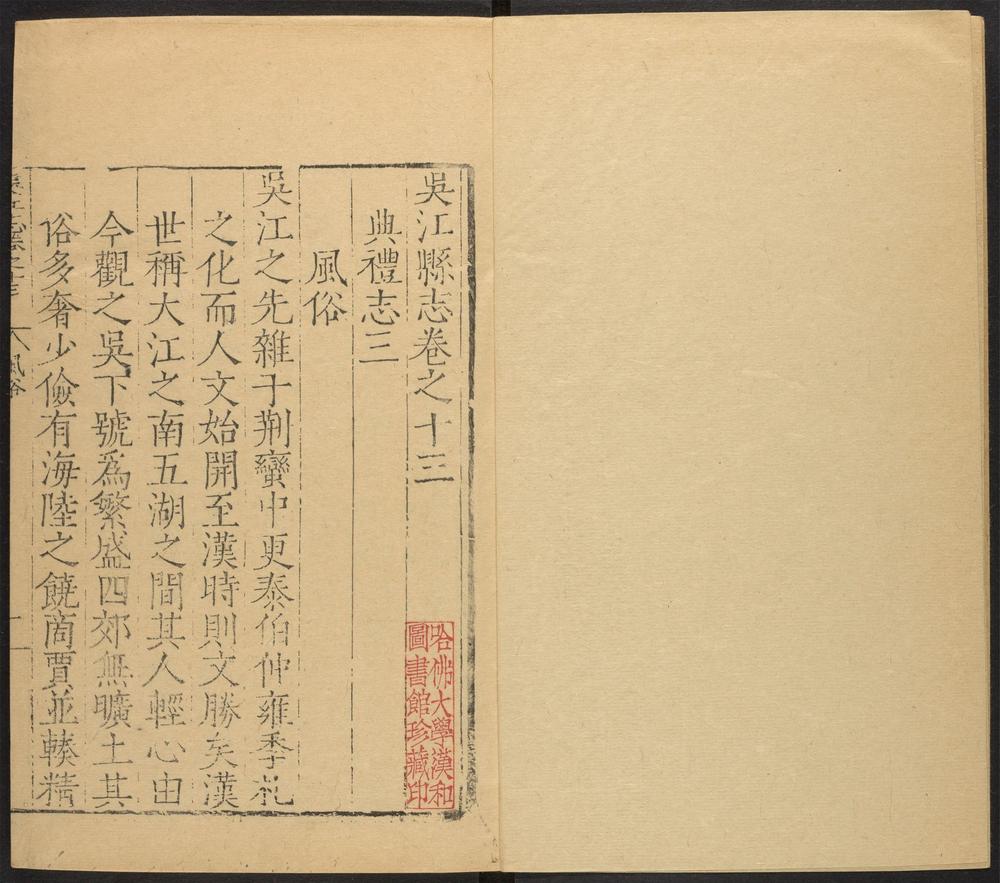 吳江縣志卷之十三
典禮志三
風俗
吳江之先雜于荆蠻中更泰伯仲雍季札
之化而人文始開至漢時則文勝矣漢
世稱大江之南五湖之間其人輕心由
今觀之吳下號爲繁盛四郊無曠土其
俗多奢少儉有海陸之饒商賈並輳精
風俗
哈佛大學漢和
圖書館珍藏印